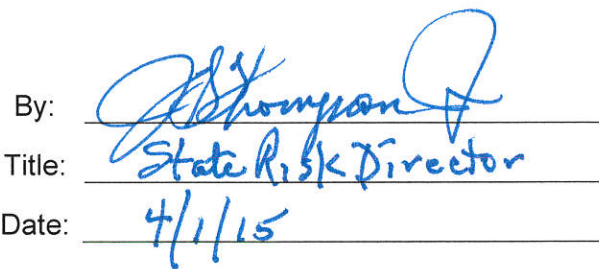 By: Thompson
Title: State Risk Director
Date: 4/1/15